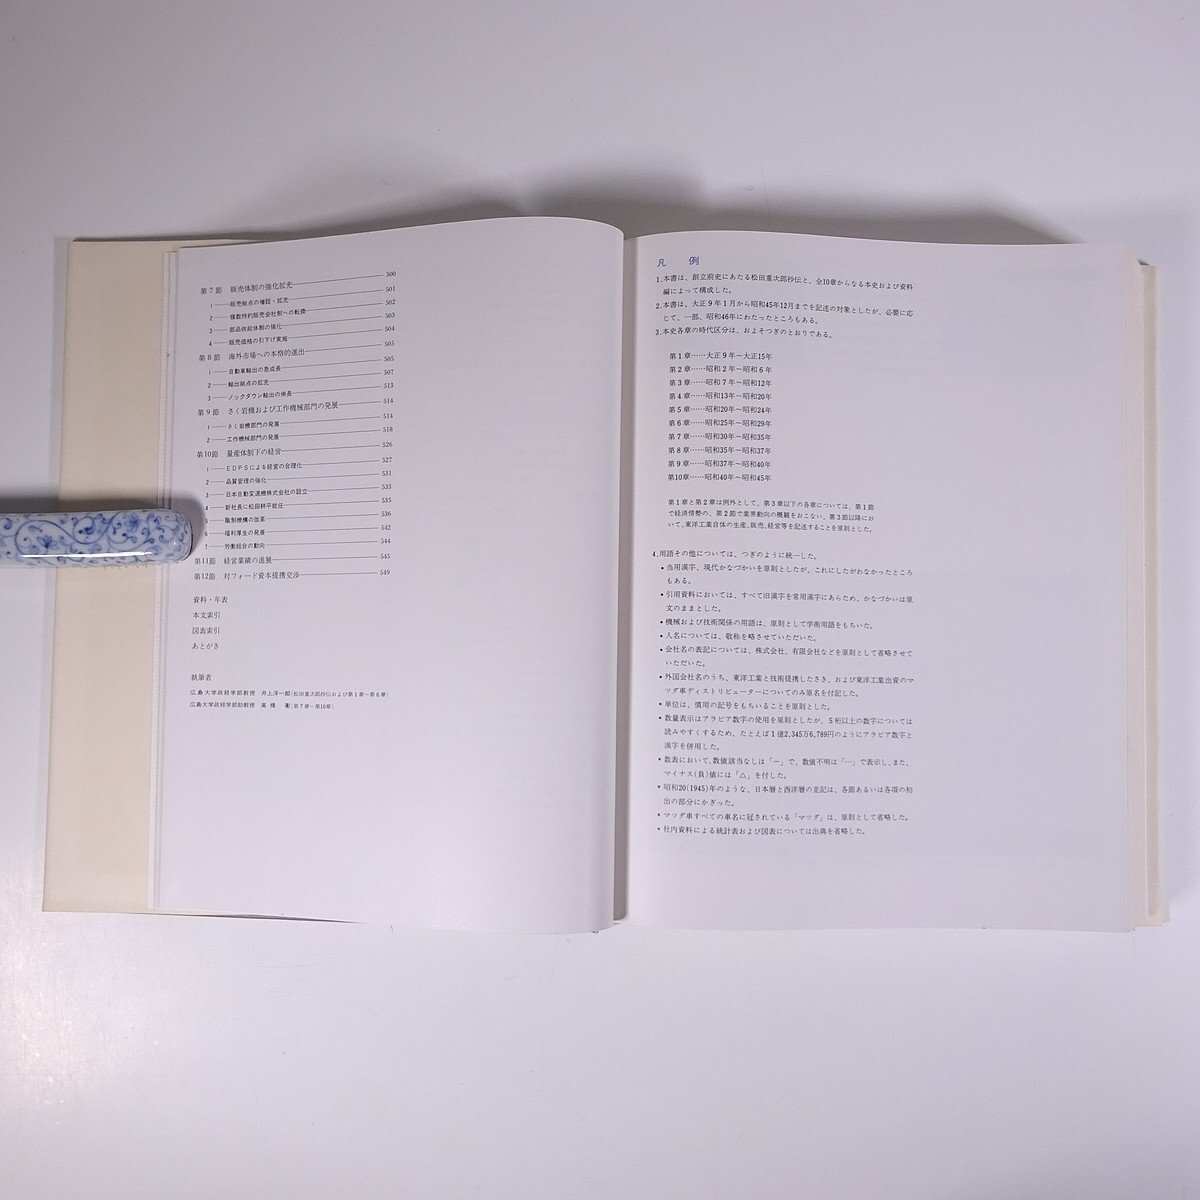 第7節　販売体制の強化拡充 500
1 販売拠点の増設・拡充 501
2 複数特約販売会社制への転換 502
3 部品供給体制の強化 503
4 販売価格の引下げ実施 504
第8節　海外市場への本格的進出 505
1 自動車輸出の急成長 505
2 輸出拠点の拡充 507
3 ノックダウン輸出の伸長 513
第9節　さく岩機および工作機械部門の発展 514
1 さく岩機部門の発展 514
2 工作機械部門の発展 518
第10節　量産体制下の経営 526
1 EDPSによる経営の合理化 527
2 品質管理の強化 531
3 日本自動変速機株式会社の設立 533
4 新社長に松田耕平就任 535
5 職制機構の改革 536
6 福利厚生の発展 542
7 労働組合の動向 544
第11節　経営業績の進展 545
第12節　対フォード資本提携交渉 549
資料・年表
本文索引
図表索引
あとがき
執筆者
広島大学政経学部教授　井上洋一郎（松田重次郎抄伝および第1章～第6章）
広島大学政経学部助教授　高橋　衞（第7章～第10章）
凡　例
1.本書は、創立前史にあたる松田重次郎抄伝と、全10章からなる本史および資料
編によって構成した。
2.本書は、大正9年1月から昭和45年12月までを記述の対象としたが、必要に応
じて、一部、昭和46年にわたったところもある。
3.本史各章の時代区分は、およそつぎのとおりである。
第1章……大正9年～大正15年
第2章……昭和2年～昭和6年
第3章……昭和7年～昭和12年
第4章……昭和13年～昭和20年
第5章……昭和20年～昭和24年
第6章……昭和25年～昭和29年
第7章……昭和30年～昭和35年
第8章……昭和35年～昭和37年
第9章……昭和37年～昭和40年
第10章……昭和40年～昭和45年
第1章と第2章は例外として、第3章以下の各章については、第1節
で経済情勢の、第2節で業界動向の概観をおこない、第3節以降にお
いて、東洋工業自体の生産、販売、経営等を記述することを原則とした。
4.用語その他については、つぎのように統一した。
•当用漢字、現代かなづかいを原則としたが、これにしたがわなかったところ
もある。
•引用資料においては、すべて旧漢字を常用漢字にあらため、かなづかいは原
文のままとした。
•機械および技術関係の用語は、原則として学術用語をもちいた。
•人名については、敬称を略させていただいた。
•会社名の表記については、株式会社、有限会社などを原則として省略させて
いただいた。
•外国会社名のうち、東洋工業と技術提携したさき、および東洋工業出資のマ
ツダ車ディストリビューターについてのみ原名を付記した。
•単位は、慣用の記号をもちいることを原則とした。
•数量表示はアラビア数字の使用を原則としたが、5桁以上の数字については
読みやすくするため、たとえば1億2,345万6,789円のようにアラビア数字と
漢字を併用した。
•数表において、数値該当なしは「－」で、数値不明は「…」で表示し、また、
マイナス（負）値には「△」を付した。
•昭和20（1945）年のような、日本暦と西洋暦の並記は、各節あるいは各項の初
出の部分にかぎった。
•マツダ車すべての車名に冠されている「マツダ」は、原則として省略した。
•社内資料による統計表および図表については出典を省略した。